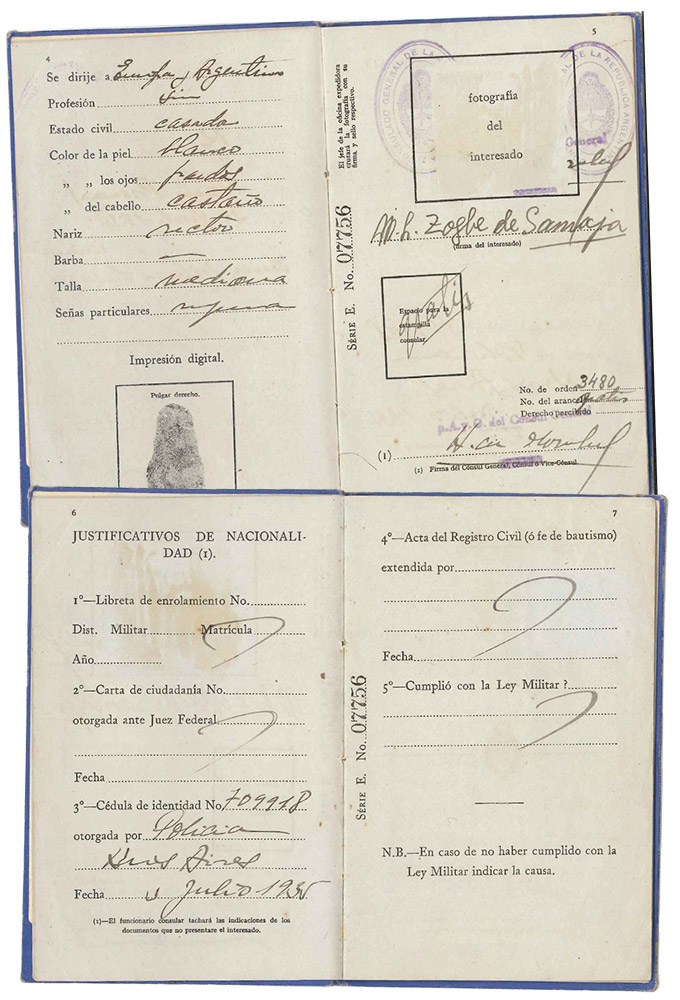 4
Se dirije a Europa y Argentina
Profesión sin
Estado civil casada
Color de la piel blanco
„ „ los ojos pardos
„ del cabello castaño
Nariz recta
Barba —
Talla mediana
Señas particulares
Impresión digital.
Pulgar derecho.
5
El jefe de la oficina expedidora
cruzará la fotografía con su
firma y sello respectivo.
SÉRIE E. No. 07756
fotografía
del
interesado
General
M. L. Zogbe de Samaja
(firma del interesado)
Espacio para la
estampilla
consular
gratis
No. de orden 3480
No. del arancel gratis
Derecho percibido
p.A.y O. del Cónsul General
(1)
(1) Firma del Cónsul General, Cónsul ó Vice-Cónsul
6
JUSTIFICATIVOS DE NACIONALI-
DAD (1).
1º—Libreta de enrolamiento No.
Dist. Militar Matrícula
Año
2º—Carta de ciudadanía No.
otorgada ante Juez Federal
Fecha
3º—Cédula de identidad No 709918
otorgada por Policia
Bnos Aires
Fecha Julio 1935
(1)—El funcionario consular tachará las indicaciones de los
documentos que no presentare el interesado.
SÉRIE E. No. 07756
7
4º—Acta del Registro Civil (ó fe de bautismo)
extendida por
Fecha
5º—Cumplió con la Ley Militar ?
N.B.—En caso de no haber cumplido con la
Ley Militar indicar la causa.